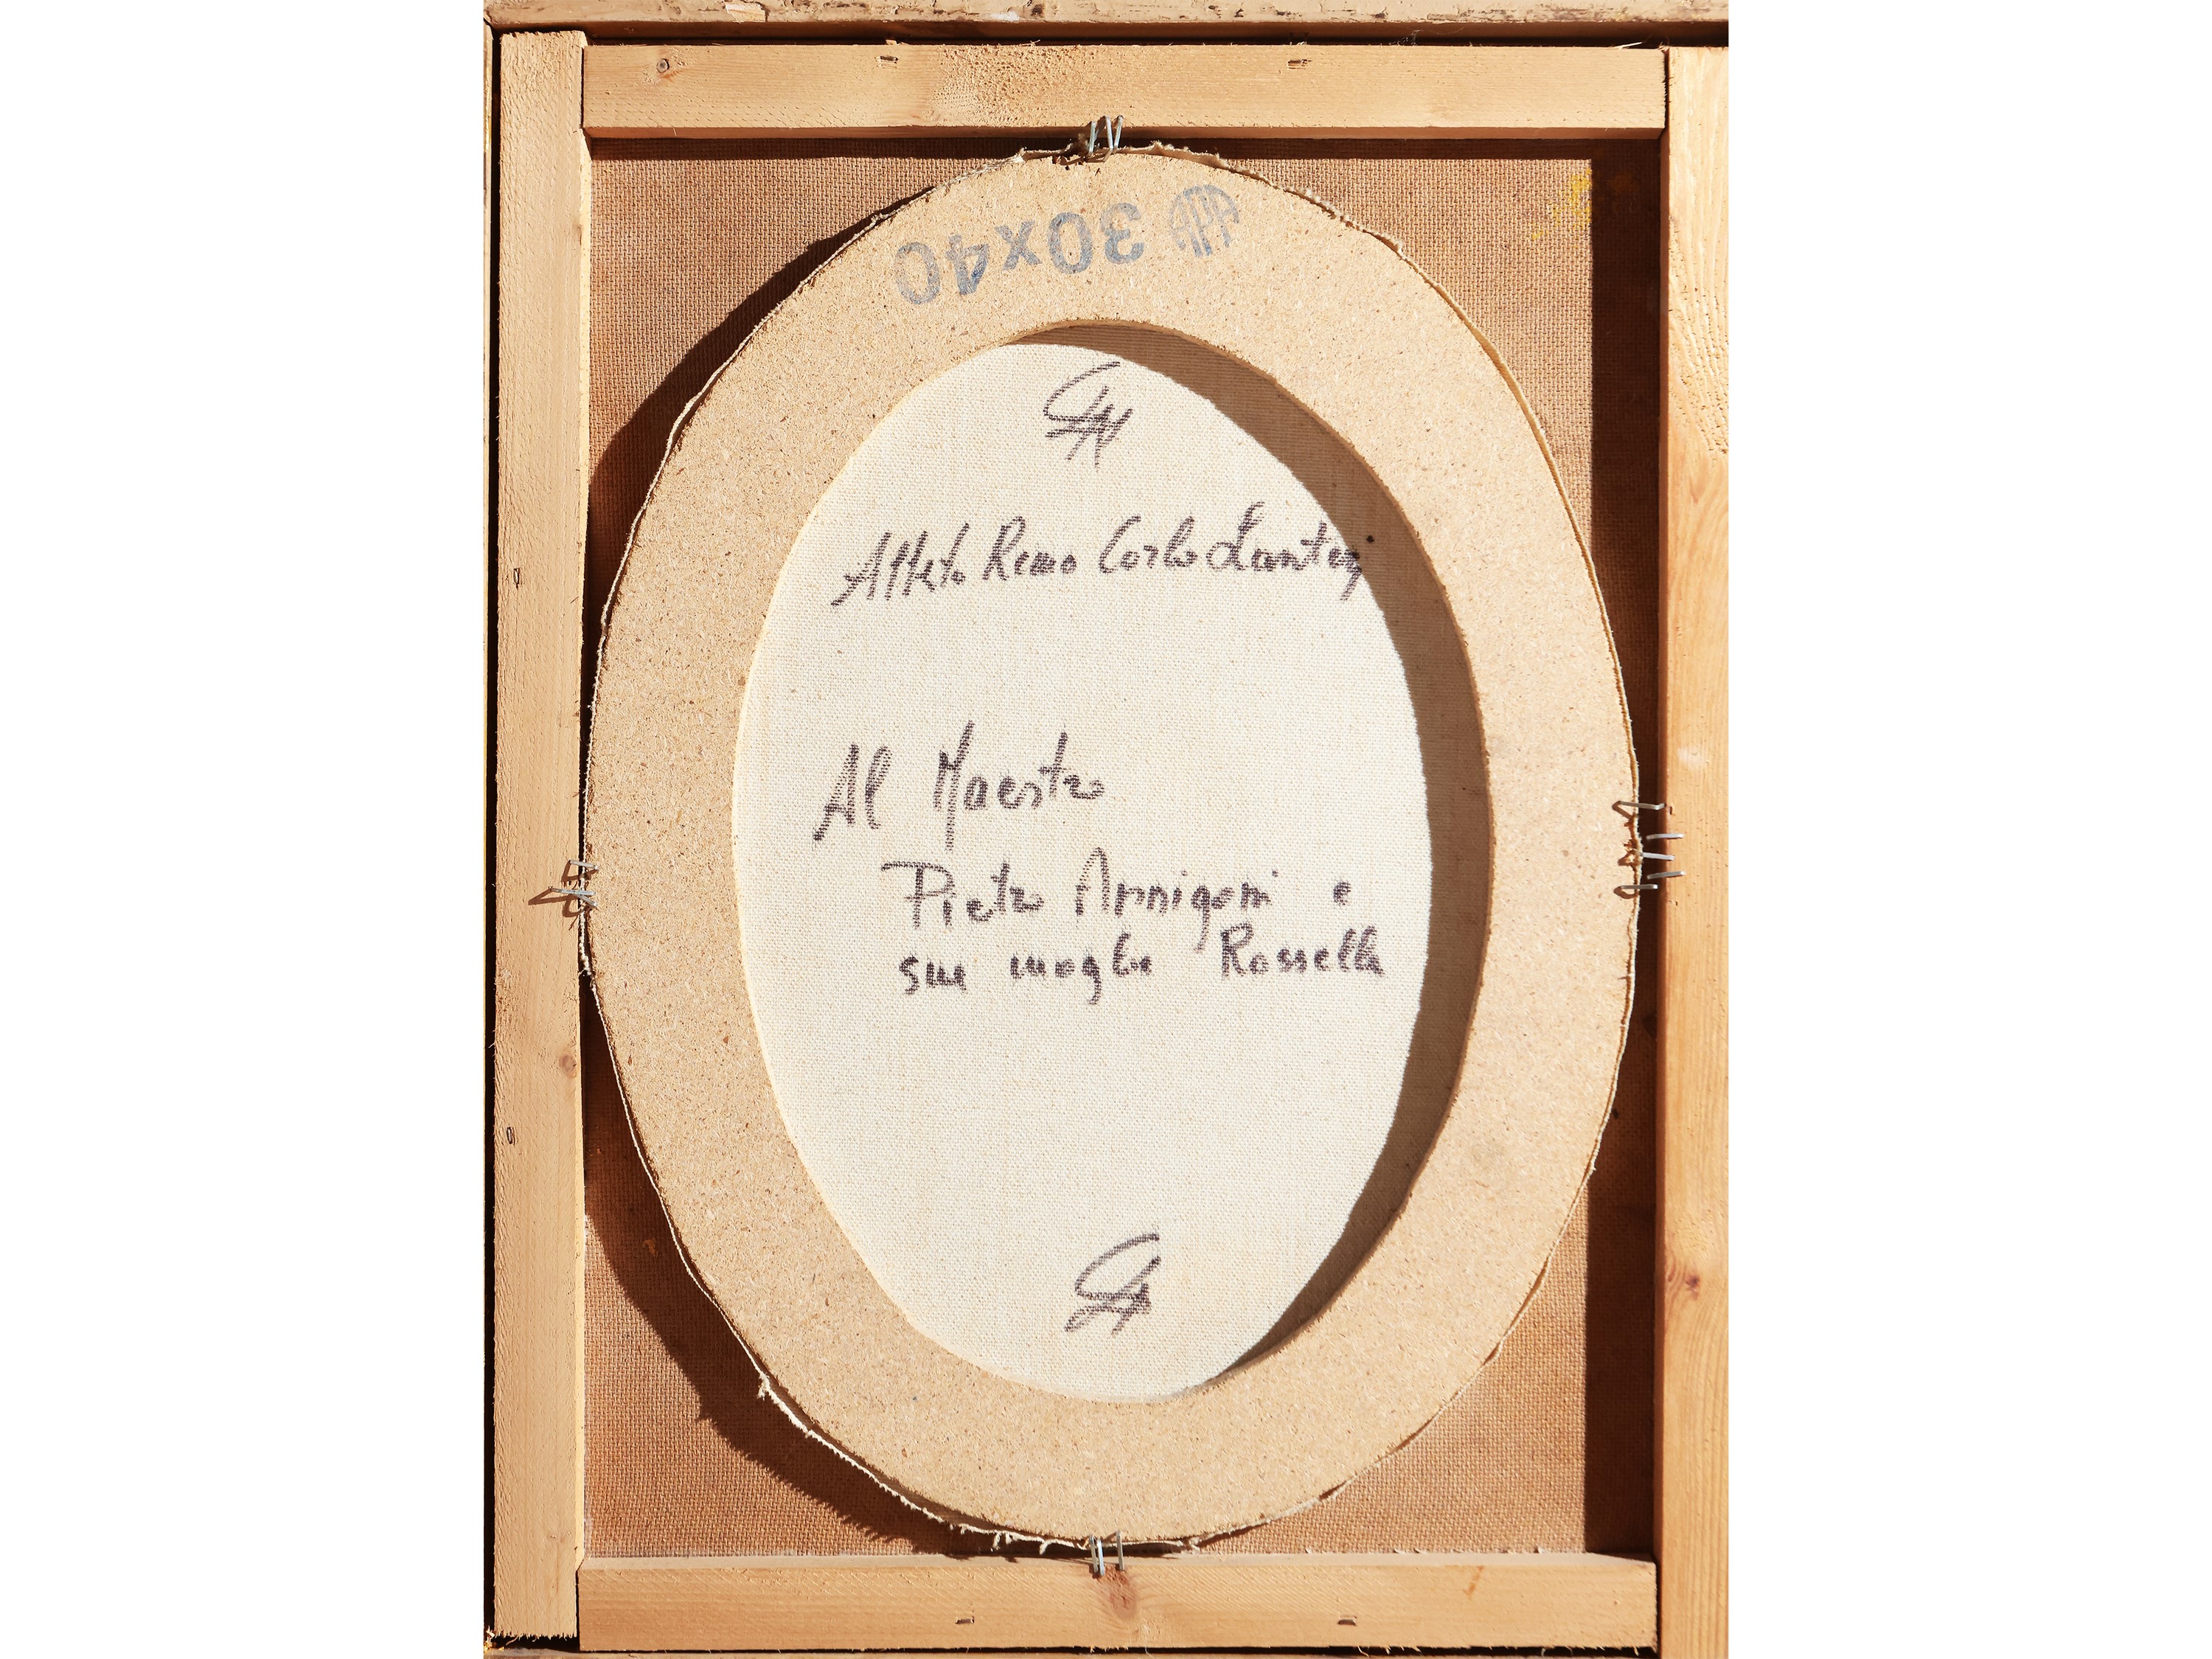 APA 30x40
Remo Carlo
Al Maestro
Pietro Annigoni e
sua moglie Rossella